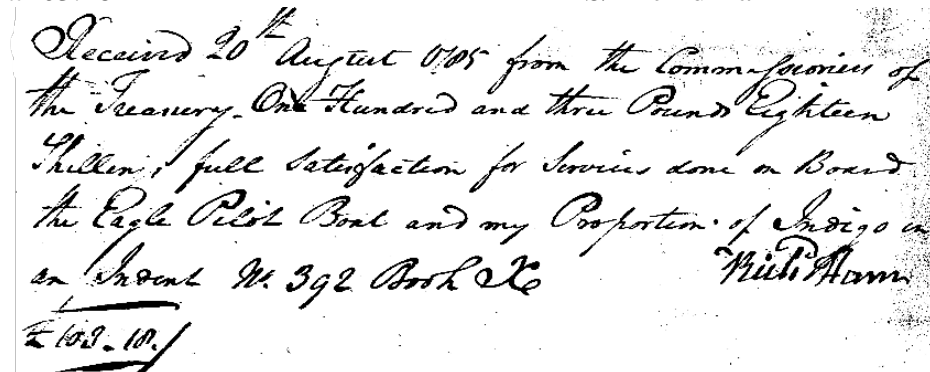 Received 20th August 1785 from the Commissioners of
the Treasury. One Hundred and three Pounds Eighteen
Shillings full Satisfaction for Services done on Board
the Eagle Pilot Boat and my Proportion of Indigo in
an Indent No. 392 Book X
£ 103..18./